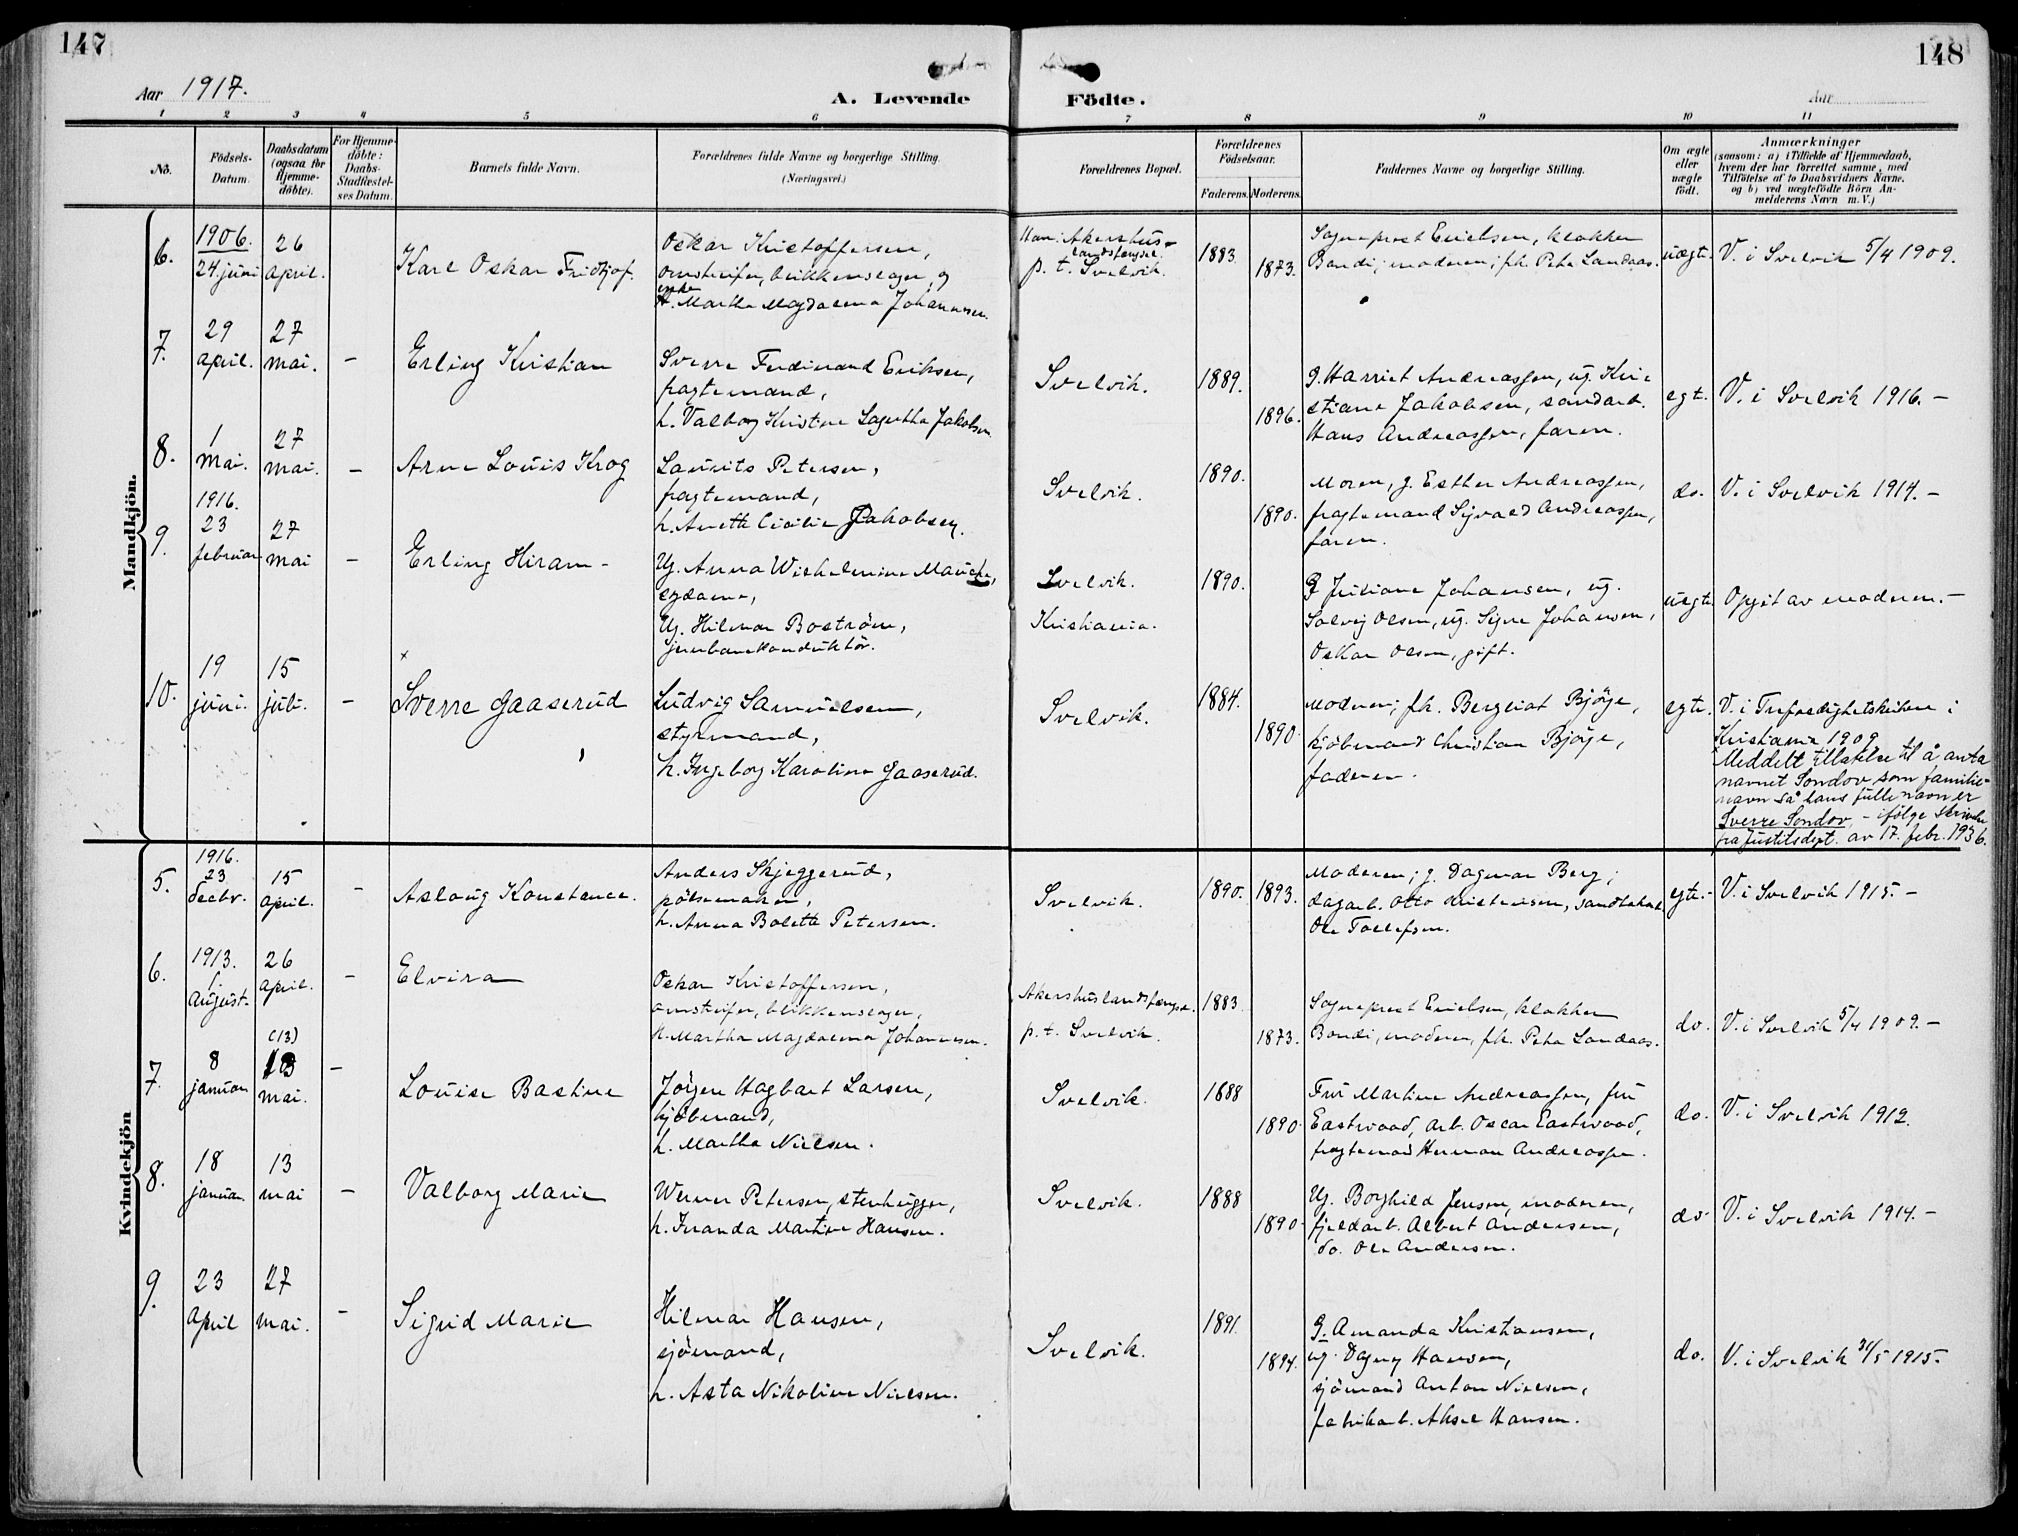 147
Aar 1917.
A. Levende
1 2 3 4 5 6
No.
Födsels-
Datum.
Daabsdatum
(ogsaa for
Hjemme-
döbte).
For Hjemme-
döbte:
Daabs-
Stadfæstel-
ses Datum.
Barnets fulde Navn.
Forældrenes fulde Navne og borgerlige Stilling.
(Næringsvei.)
148
Födte.
Aar
7 8 9 10 11
Forældrenes Bopæl.
Forældrenes
Födselsaar.
Faderens. Moderens.
Faddernes Navne og borgerlige Stilling.
Om ægte
eller
uægte
födt.
Anmærkninger
(saasom: a) i Tilfælde af Hjemmedaab,
hvem der har forrettet samme, med
Tilföielse af to Daabsvidners Navne,
og b) ved uægtefödte Börn An-
melderens Navn m. V.)
Mandkjön.
6.
1906.
24. juni
26
april.
Karl Oskar Fridtjof.
Oskar Kristoffersen,
omstreifer, blikkenslager, og
enke
Martha Magdalena Johannesen.
Man: Akershus
landsfengsel.
p. t. Svelvik.
1883
1873.
Sogneprest Erielsen, klokker
Bondi, moderen, fh. Petra Landaas.
uægte.
V. i Svelvik 5/4 1909.
7.
29
april.
27
mai.
–
Erling Kristian
Sverre Ferdinand Eriksen,
fragtemand,
h. Valborg Kristine Lagertha Jakobsen.
Svelvik.
1889.
1896.
g. Harriet Andreassen, ug. Kri-
stiane Jakobsen, sandarb.
Hans Andreassen, faren.
egt.
V. i Svelvik 1916. –
8.
1
mai.
27
mai.
–
Arne Louis Krog
Laurits Petersen,
fragtemand,
h. Anette Cicilie Jakobsen.
Svelvik.
1890.
1890.
Moren, g. Esther Andreassen,
fragtemand Sigvald Andreassen,
faren.
do.
V. i Svelvik 1914. –
9.
1916.
23
februar
27
mai
–
Erling Hiram –
Ug. Anna Wilhelmine Mauche,
sydame,
Ug. Hilmar Boström,
jernbanekonduktör.
Svelvik.
Kristiania.
1890.
G Juliane Johansen, ug.
Solvig Olsen, ug. Signe Johansen,
Oskar Olsen, gift.
uegte
Opgit av moderen. –
10.
19
juni.
15
juli.
–
×
Sverre Gaaserud
Ludvig Samuelsen,
styrmand,
h. Ingeborg Karoline Gaaserud.
Svelvik.
1884.
1890
Moderen, fh. Bergliot Björge,
kjöbmand Christian Björge,
faderen.
egte.
V. i Trefoldighetskirken i
Kristiania 1909
Meddelt tillatelse til å anta
navnet Sondov som familie-
navn så hans fulle navn er
Sverre Sondov, – ifölge skrivelse
fra Justitsdept. av 17. febr. 1936.
Kvindekjön
5.
1916.
23
decbr.
15
april.
–
Aslaug Konstance.
Anders Skjeggerud,
pölsemaker,
h. Anna Bolette Petersen.
Svelvik.
1890.
1893.
Moderen; g. Dagmar Berg;
dagarb. Otto Kristensen, sandtakarb.
Ole Tollefsen.
egte. –
V. i Svelvik 1915. –
6.
1913.
1.
august.
26
april.
–
Elvira
Oskar Kristoffersen,
omstreifer, blikkenslager,
h. Martha Magdalena Johannesen.
Akershus landsfængsel.
p. t. Svelvik.
1883
1873.
Sogneprest Erielsen, klokker
Bondi, moderen, fh. Petra Landaas.
do.
V. i Svelvik 5/4 1909. –
7.
8
januar
(13)
13
mai.
–
Louise Bastine
Jörgen Hagbart Larsen,
kjöbmand,
h. Martha Nielsen.
Svelvik.
1888
1890
Fru Martine Andreassen, fru
Eastwood, arb. Oscar Eastwood,
fragtemand Herman Andreassen.
do.
V. i Svelvik 1912.
8.
18
januar.
13
mai
–
Valborg Marie
Werner Petersen, stenhugger,
h. Inanda Martine Hansen.
Svelvik.
1888
1890
Ug. Borghild Jensen, moderen,
fjeldarb. Albert Andersen,
do. Ole Andersen.
do
V. i Svelvik 1914. –
9.
23
april
27
mai.
–
Sigrid Marie
Hilmar Hansen,
sjömand,
h. Asta Nikoline Nielsen.
Svelvik.
1891.
1894.
G. Amanda Kristiansen,
ug. Dagny Hansen,
sjömand Anton Nielsen,
fabrikarb. Aksel Hansen.
do.
V. i Svelvik 31/5 1915.